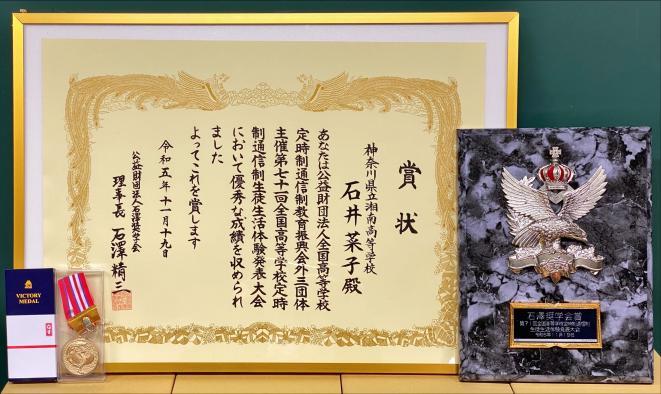 賞状
神奈川県立湘南高等学校
石井菜子殿
あなたは公益財団法人全国高等学校
定時制通信制教育振興会外三団体
主催第七十一回全国高等学校定時
制通信制生徒生活体験発表大会
において優秀な成績を収められ
ました
よってこれを賞します
令和五年十一月十九日
公益財団法人石澤奨学会
理事長 石澤精三
VICTORY
MEDAL
石澤奨学会賞
第71回全国高等学校定時制通信制
生徒生活体験発表大会
令和5年11月19日